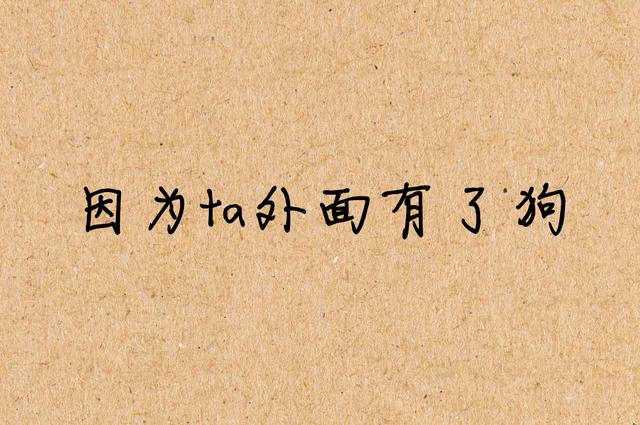 因为ta外面有了狗